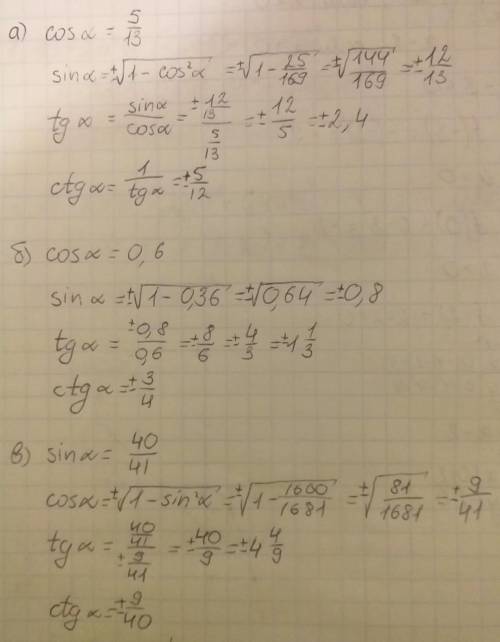 а) cosα = 5/13
sinα = ±√(1 - cos²α) = ±√(1 - 25/169) = ±√(144/169) = ±12/13
tgα = sinα/cosα = (±12/13)/(5/13) = ±12/5 = ±2,4
ctgα = 1/tgα = ±5/12
б) cosα = 0,6
sinα = ±√(1 - 0,36) = ±√(0,64) = ±0,8
tgα = ±0,8/0,6 = ±8/6 = ±4/3 = ±1 1/3
ctgα = ±3/4
в) sinα = 40/41
cosα = ±√(1 - sin²α) = ±√(1 - 1600/1681) = ±√(81/1681) = ±9/41
tgα = (40/41)/(±9/41) = ±40/9 = ±4 4/9
ctgα = ±9/40